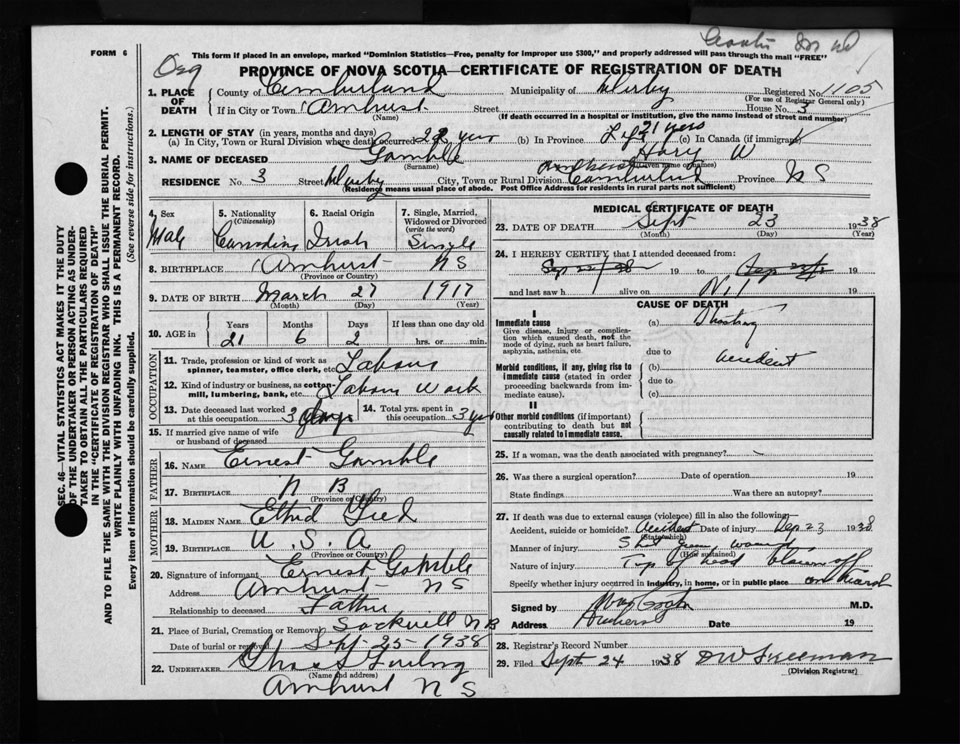 FORM 6
This form if placed in an envelope, marked "Dominion Statistics—Free, penalty for improper use $300," and properly addressed will pass through the mail "FREE"
PROVINCE OF NOVA SCOTIA—CERTIFICATE OF REGISTRATION OF DEATH
1. PLACE OF DEATH County of Cumberland Municipality of Registered No. 1105
(For use of Registrar General only)
If in City or Town Amhurst Street House No. 3
(Name) (If death occurred in a hospital or institution, give the name instead of street and number)
2. LENGTH OF STAY (in years, months and days)
(a) In City, Town or Rural Division where death occurred (b) In Province 21 years (c) In Canada (if immigrant)
3. NAME OF DECEASED Gamble W
(Surname) (Given name or names)
RESIDENCE No. 3 Street City, Town or Rural Division Province N S
(Residence means usual place of abode. Post Office Address for residents in rural parts not sufficient)
SEC. 46—VITAL STATISTICS ACT MAKES IT THE DUTY
OF THE UNDERTAKER OR PERSON ACTING AS UNDER-
TAKER TO OBTAIN ALL THE PARTICULARS REQUIRED
IN THE "CERTIFICATE OF REGISTRATION OF DEATH"
AND TO FILE THE SAME WITH THE DIVISION REGISTRAR WHO SHALL ISSUE THE BURIAL PERMIT.
WRITE PLAINLY WITH UNFADING INK. THIS IS A PERMANENT RECORD.
Every item of information should be carefully supplied. (See reverse side for instructions.)
4. Sex
Male
5. Nationality
(Citizenship)
6. Racial Origin
Irish
7. Single, Married,
Widowed or Divorced
(write the word)
Single
8. BIRTHPLACE Amhurst N S
(Province or Country)
9. DATE OF BIRTH March 27 1917
(Month) (Day) (Year)
10. AGE in Years Months Days If less than one day old
21 6 2 hrs. or min.
OCCUPATION
11. Trade, profession or kind of work as
spinner, teamster, office clerk, etc.
12. Kind of industry or business, as cotton-
mill, lumbering, bank, etc. Work
13. Date deceased last worked
at this occupation 3 days
14. Total yrs. spent in
this occupation 3
15. If married give name of wife
or husband of deceased
FATHER
16. NAME Ernest Gamble
17. BIRTHPLACE N B
(Province or Country)
MOTHER
18. MAIDEN NAME
19. BIRTHPLACE U. S. A
(Province or Country)
20. Signature of informant Ernest Gamble
Address Amhurst N S
Relationship to deceased Father
21. Place of Burial, Cremation or Removal Sackvill N B
Date of burial or removal Sept 25 1938
22. UNDERTAKER
(Name and address)
Amhurst N S
MEDICAL CERTIFICATE OF DEATH
23. DATE OF DEATH Sept 23 1938
(Month) (Day) (Year)
24. I HEREBY CERTIFY that I attended deceased from:
19 to 19
and last saw h alive on Nil 19
CAUSE OF DEATH
I
Immediate cause (a) Shooting
Give disease, injury or complica-
tion which caused death, not the
mode of dying, such as heart failure,
asphyxia, asthenia, etc.
due to
Morbid conditions, if any, giving rise to
immediate cause (stated in order
proceeding backwards from im-
mediate cause).
(b) accident
due to
(c)
II
Other morbid conditions (if important)
contributing to death but not
causally related to immediate cause.
25. If a woman, was the death associated with pregnancy?
26. Was there a surgical operation? Date of operation 19
State findings Was there an autopsy?
27. If death was due to external causes (violence) fill in also the following:
Accident, suicide or homicide? Accident Date of injury Sep 23 1938
(State which)
Manner of injury wound
(How sustained)
Nature of injury Top of head blown off
Specify whether injury occurred in industry, in home, or in public place
Signed by M.D.
Address Amherst Date 19
28. Registrar's Record Number
29. Filed Sept 24 1938 D W Freeman
(Division Registrar)